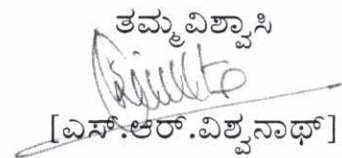 ತಮ್ಮ ವಿಶ್ವಾಸಿ
[ಎಸ್.ಆರ್.ವಿಶ್ವನಾಥ್]